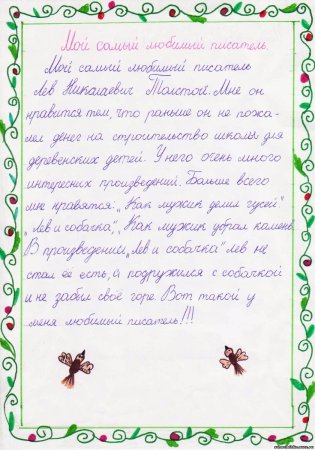 Мой самый любимый писатель.
Мой самый любимый писатель
Лев Николаевич Толстой. Мне он
нравится тем, что раньше он не пожа-
лел денег на строительство школы для
деревенских детей. У него очень много
интересних произведений. Больше всего
мне нравятся: „Как мужик делил гусей"
„Лев и собачка", „Как мужик убрал камень.
В произведении „Лев и собачка" лев не
стал её есть, а подружился с собачкой
и не забыл своё горе. Вот такой у
меня любимый писатель!!!